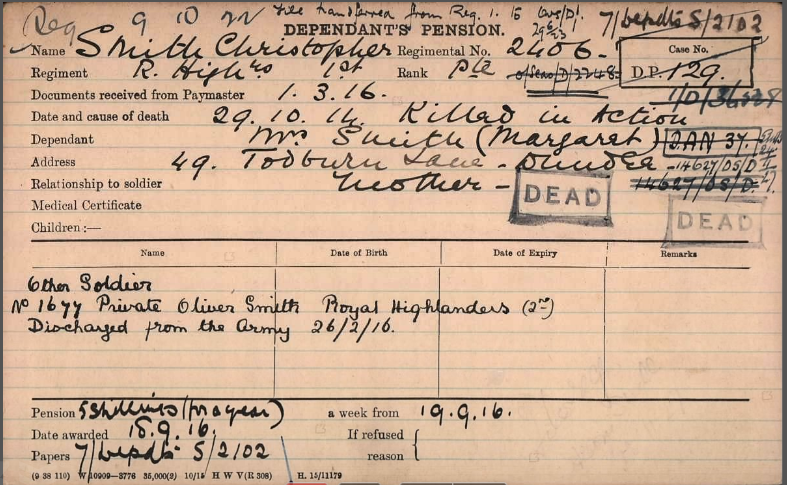 Reg 9 10 File transferred from Reg. 1. 7/Depdts S/2102
DEPENDANT'S PENSION.
Name Smith Christopher Regimental No. 2406 Case No.
Regiment R. Highrs 1st Rank Pte D.P. 129.
Documents received from Paymaster 1. 3. 16.
Date and cause of death 29. 10. 14. Killed in Action
Dependant Mrs Smith (Margaret) JAN 37.
Address 49. Todburn Lane - Dundee 14627/DS/D
Relationship to soldier Mother - 14627/DS/D
DEAD
Medical Certificate
DEAD
Children:—
Name Date of Birth Date of Expiry Remarks
Other Soldier
No 1677 Private Oliver Smith Royal Highlanders (2nd)
Discharged from the Army 26/2/16.
Pension 5 Shillings (for a year) a week from 19.9.16.
Date awarded 18.9.16. If refused
Papers 7/Depdts S/2102 reason
(9 38 110) W10909—3776 35,000(2) 10/15 H W V(R 308) H. 15/11179